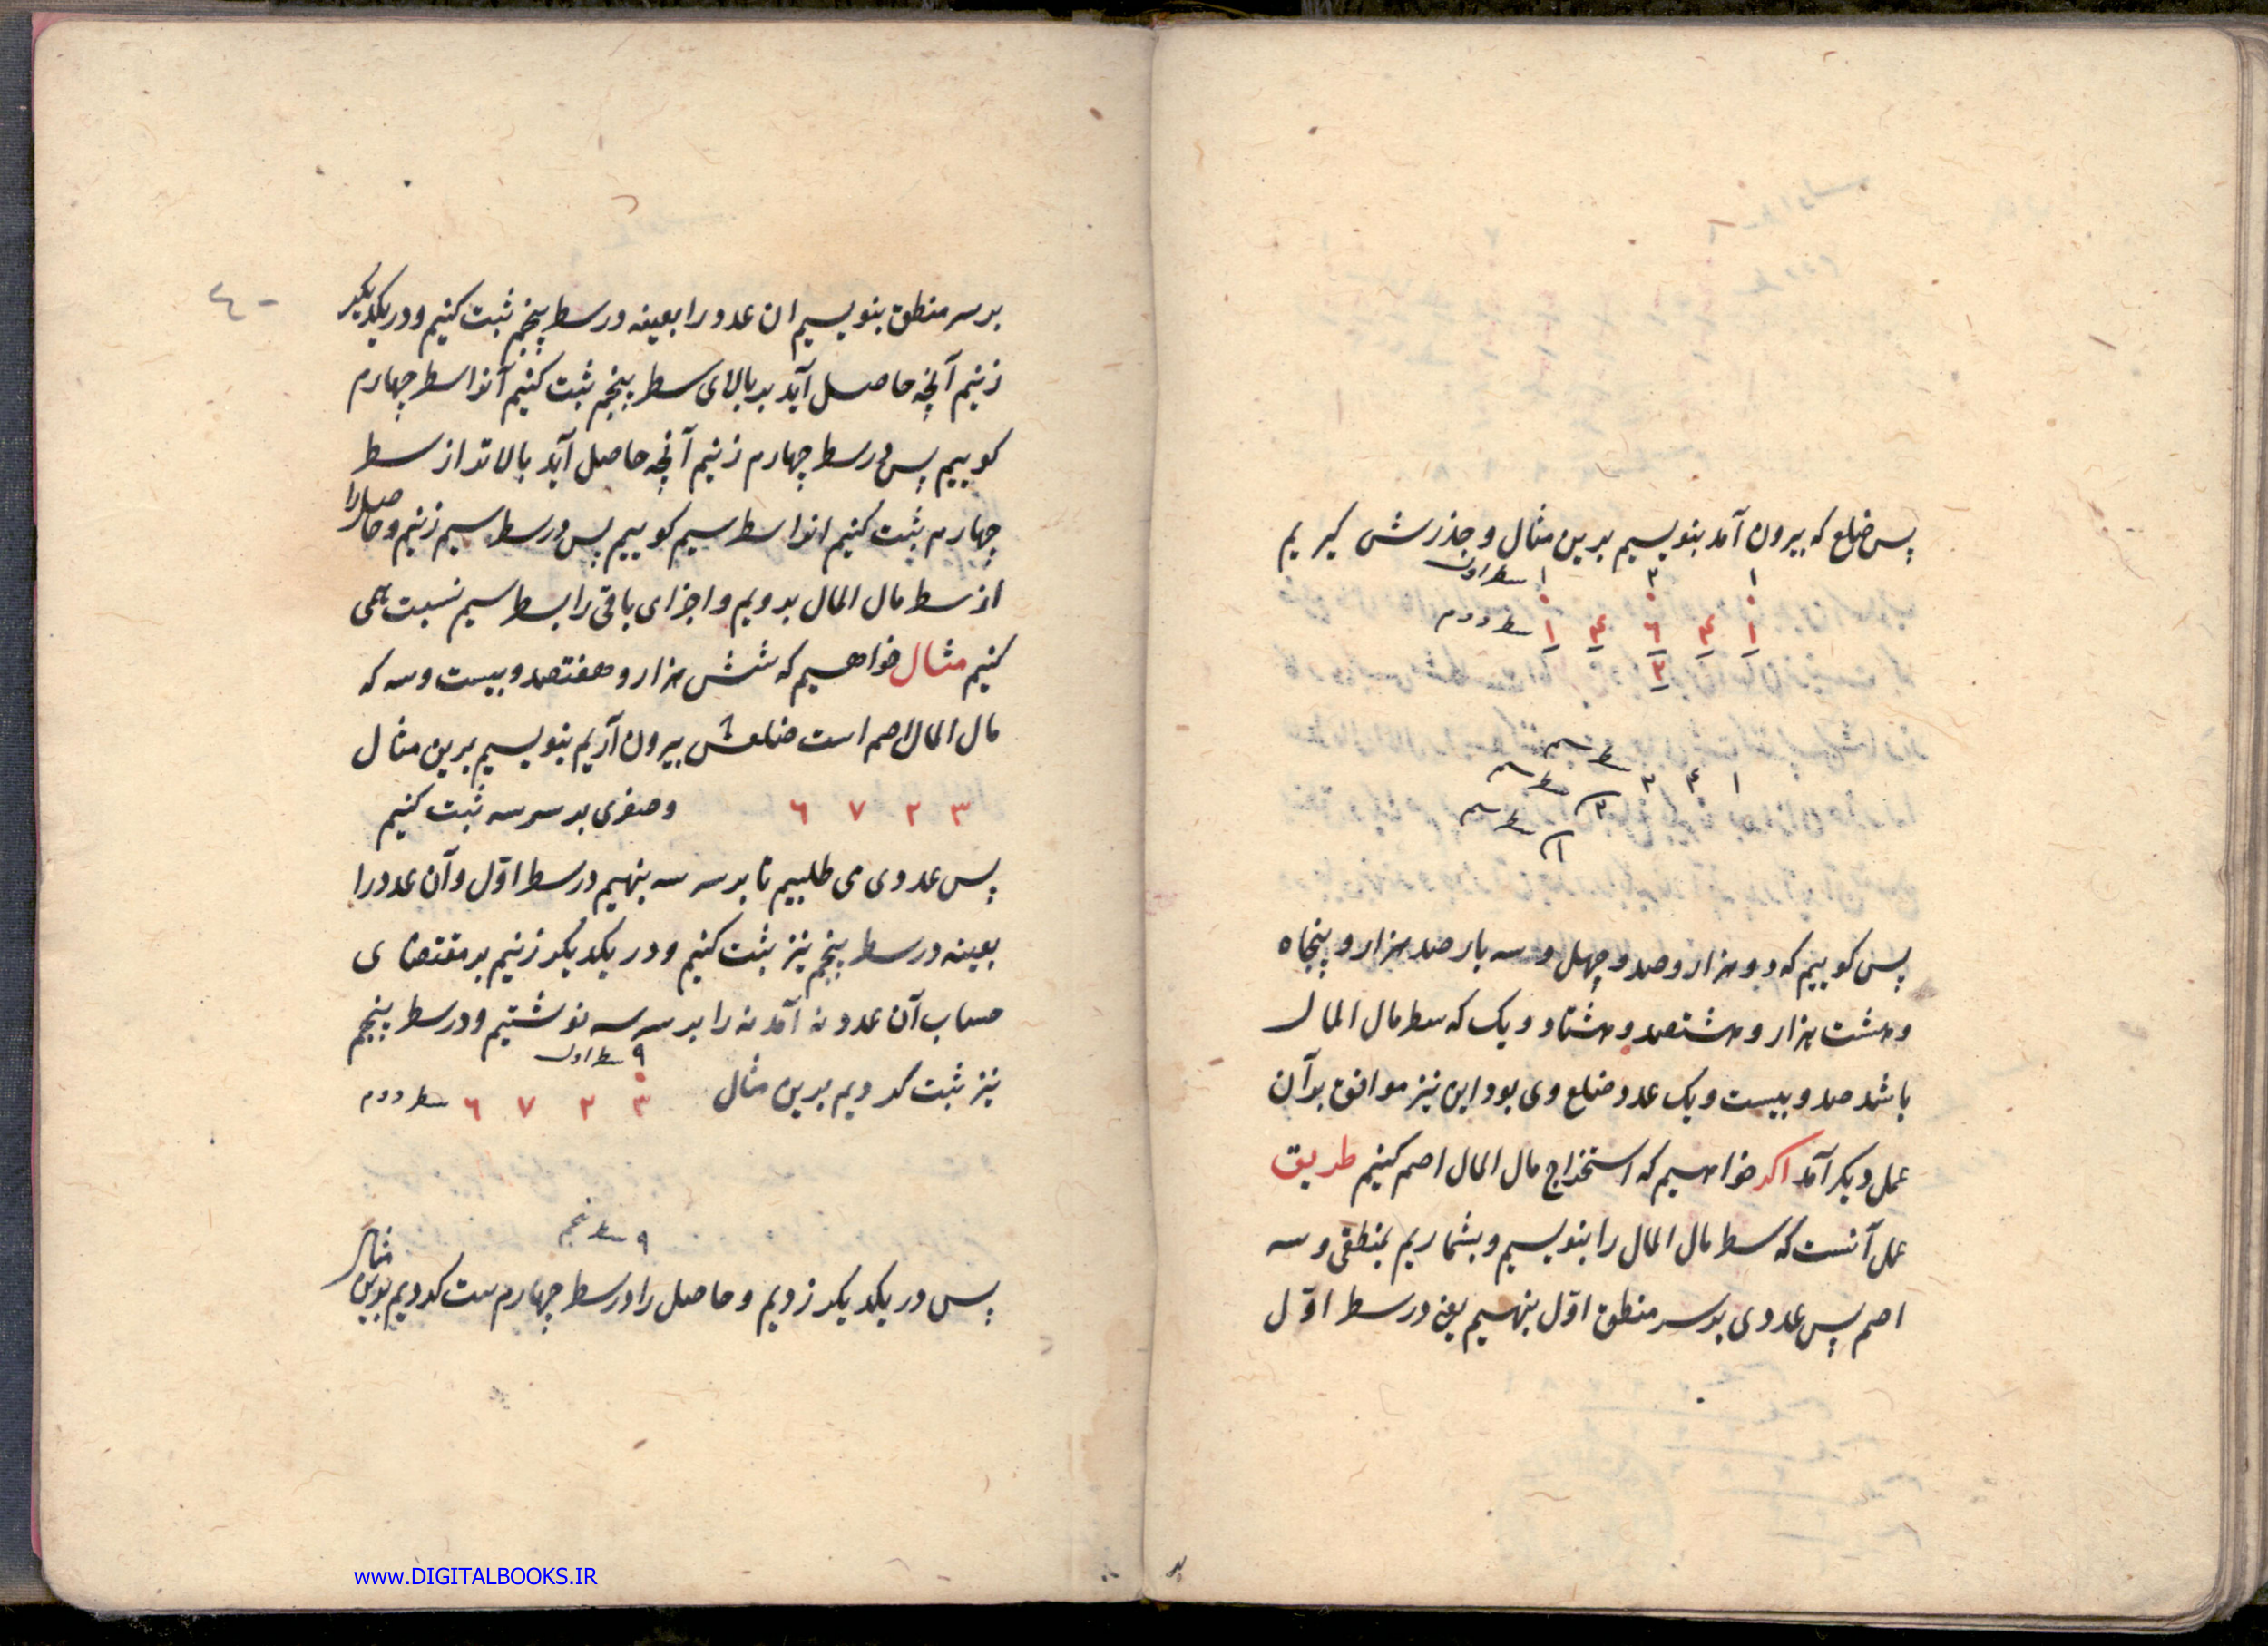 پس ضلع که بیرون آمد بنویسیم برین مثال و جذرش کیریم
۱ ۲ ۱ سطر اول
۱ ۴ ۶ ۴ ۱ سطر دوم
۲
۱ ۴ ۲ سطر سیم
۲ سطر سیم
۱ سطر سیم
پس کوییم که دو هزار و صد و چهل و سه بار صد هزار و پنجاه
و هشت هزار و هشتصد و هشتاد و یک که سطر مال المال
باشد صد و بیست و یک عدد ضلع وی بود این نیز موافق بر آن
عمل دیکر آمد اکر خواهیم که استخراج مال المال اصم کنیم طریق
عمل آنست که سطر مال المال را بنویسیم و بشماریم بمنطقی و سه
اصم پس عددی بر سر منطق اوّل بنهیم یعن در سطر اوّل
بر
۴۰
بر سر منطق بنویسیم ان عدد را بعینه در سطر پنجم ثبت کنیم و در یکدیکر
زنیم آنچه حاصل آید بر بالای سطر پنجم ثبت کنیم آنرا سطر چهارم
کوییم پس در سطر چهارم زنیم آنچه حاصل آید بالاتر از سطر
چهارم ثبت کنیم انرا سطر سیم کوییم پس در سطر سیم زنیم و حاصل را
از سطر مال المال برویم و اجزای باقی را بسطر سیم نسبت همی
کنیم مثال خواهیم که شش هزار و هفتصد و بیست و سه که
مال المال اصم است ضلعش بیرون آریم بنویسیم برین مثال
۳ ۲ ۷ ۶ و صفری بر سر سه ثبت کنیم
پس عددی می طلبیم تا بر سر سه بنهیم در سطر اوّل و آن عدد را
بعینه در سطر پنجم نیز ثبت کنیم و در یکدیکر زنیم بر مقتضای
حساب آن عدد نه آمد نه را بر سر سه نوشتیم و در سطر پنجم
۹ سطر اول
نیز ثبت کردیم برین مثال ۳ ۲ ۷ ۶ سطر دوم
۹ سطر پنجم
پس در یکدیکر زدیم و حاصل را در سطر چهارم ثبت کردیم برین مثال
www.DIGITALBOOKS.IR